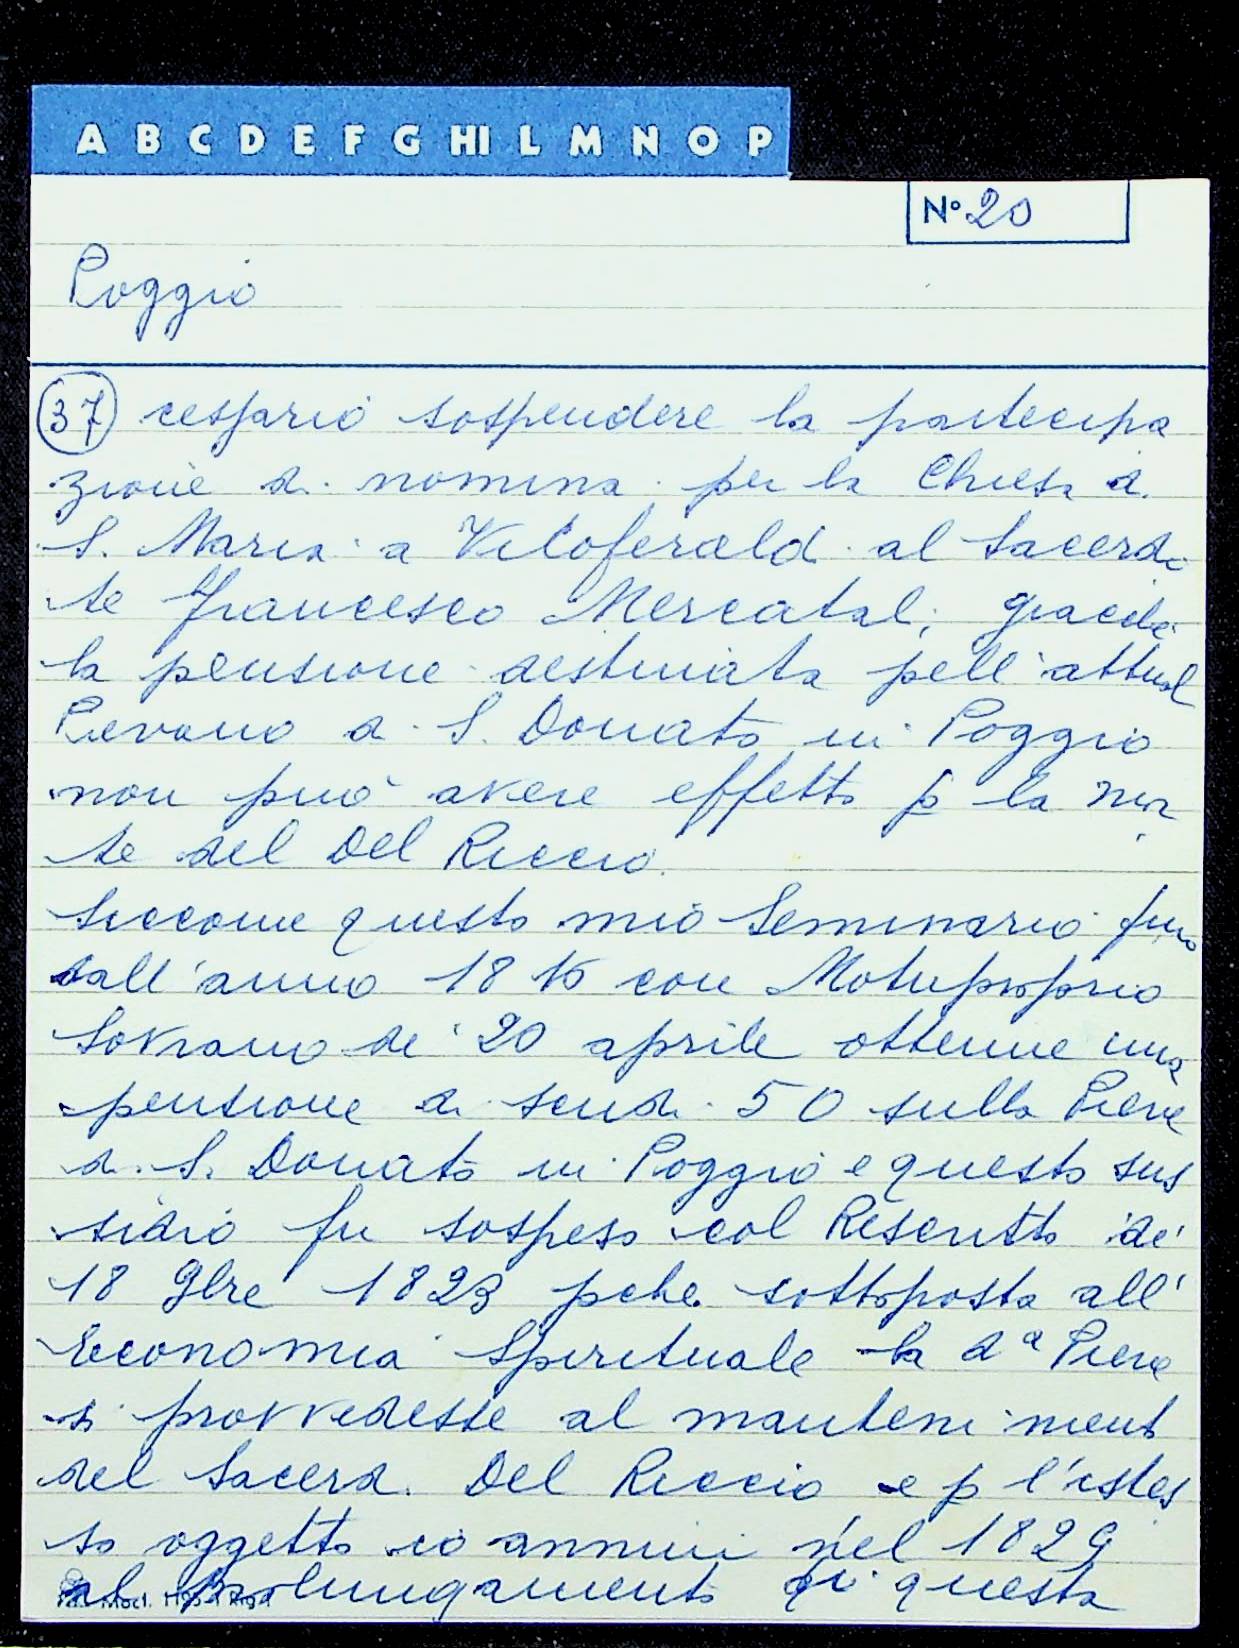 A B C D E F G HI L M N O P
N° 20
Poggio
37 cessario sospendere la partecipa
zione di nomina per la Chiesa di
S. Maria a Vicoferald al Sacerdo
te Francesco Mercatali, giacché
la pensione destinata pell'attual
Pievano di S. Donato in Poggio
non può avere effetto p la mor
te del Del Riccio.
Siccome questo mio Seminario fino
dall'anno 18 con Motuproprio
Sovrano de' 20 aprile ottenne una
pensione di scudi 50 sulla Pieve
di S. Donato in Poggio e questo sus
sidio fu sospeso col Rescritto de'
18 9bre 1823 pche sottoposta all'
Economia Spirituale la dª Pieve
si provvedesse al manteniment
del Sacerd. Del Riccio e p l'istes
so oggetto io annuii nel 1829
al prolungamento di questa